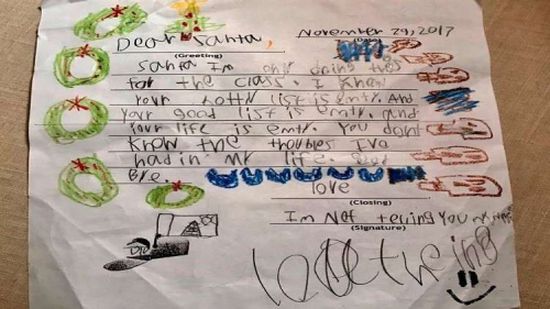 November 29, 2017
(Date)
Dear Santa,
(Greeting)
Santa Im only doing this
for the class. I know
your notty list is emty. And
your good list is emty. and
your life is emty. You dont
know the troubles Iva
had in my life. Good
Bye.
love
(Closing)
I'm Not telling you my name
(Signature)